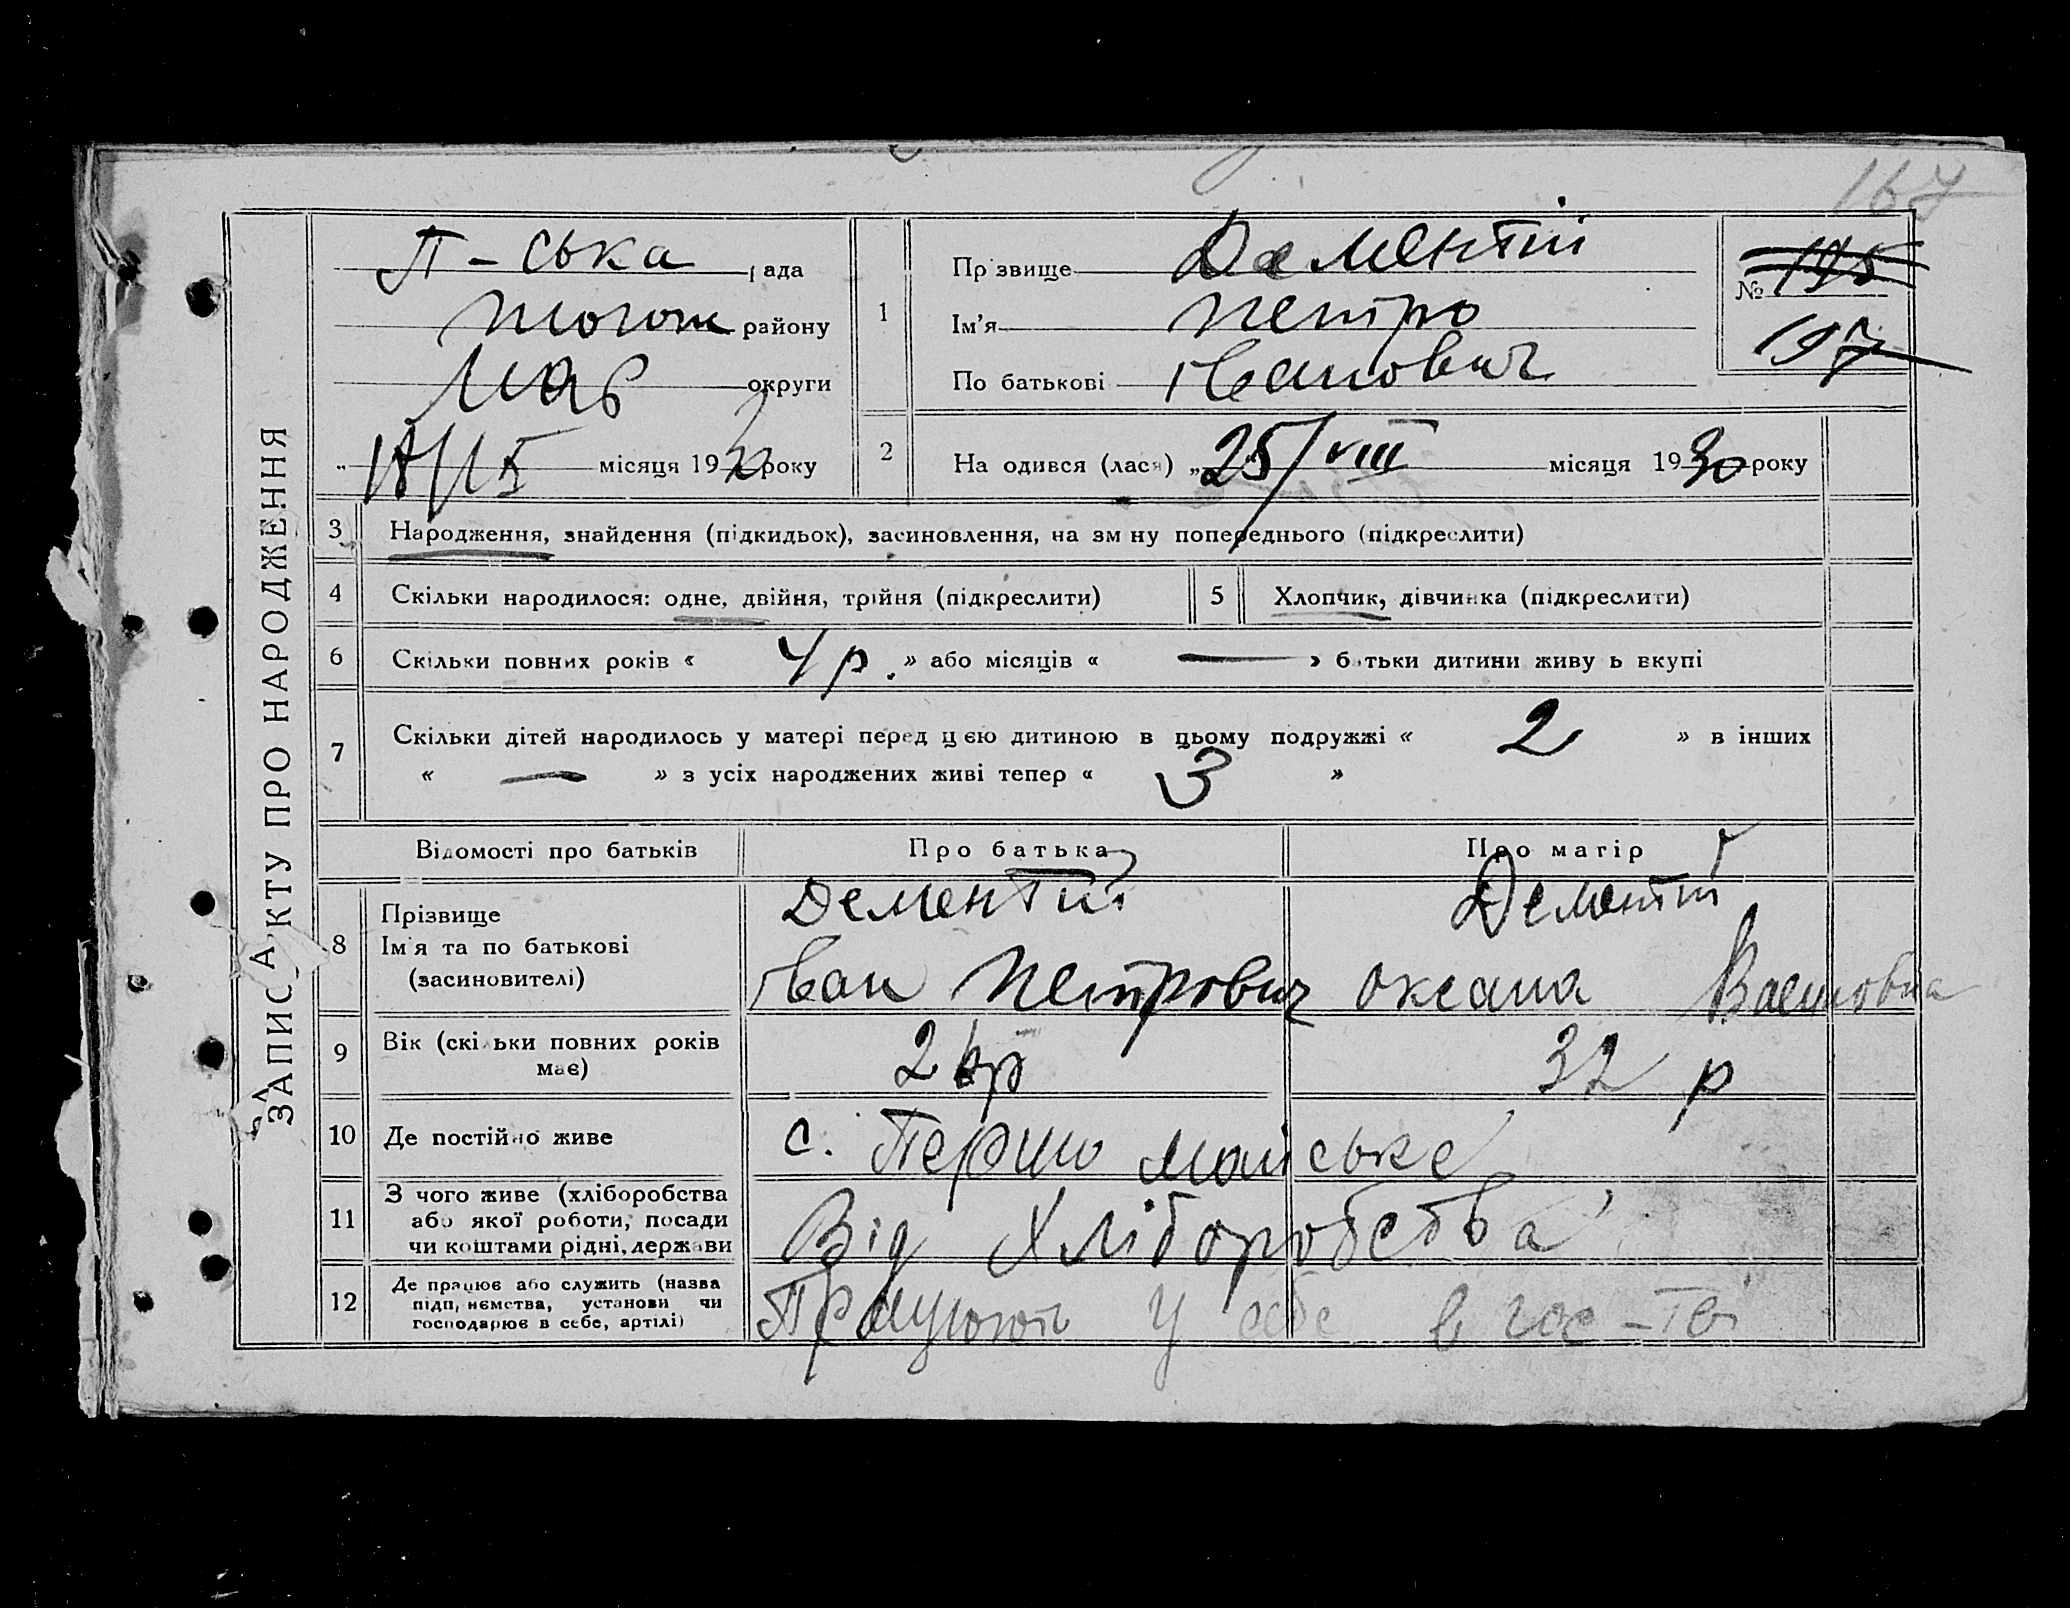 167
ЗАПИС АКТУ ПРО НАРОДЖЕННЯ
П-ська рада
району
Мар округи
місяця 19 року
1
Прізвище Дементій
Ім'я Петро
По батькові Іванович
№ 195
197
2
Народився (лася) „25/VIII місяця 1930 року
3 Народження, знайдення (підкидьок), засиновлення, на зміну попереднього (підкреслити)
4 Скільки народилося: одне, двійня, трійня (підкреслити) 5 Хлопчик, дівчинка (підкреслити)
6 Скільки повних років « 4 р. » або місяців « — » батьки дитини живуть вкупі
7 Скільки дітей народилось у матері перед цією дитиною в цьому подружжі « 2 » в інших
« — » з усіх народжених живі тепер « 3 »
Відомості про батьків Про батька Про матір
8 Прізвище Дементий Дементій
Ім'я та по батькові Іван Петрович Оксана
(засиновителі)
9 Вік (скільки повних років має) 32 р
10 Де постійно живе с. Першо майське
11 З чого живе (хліборобства
або якої роботи, посади
чи коштами рідні, держави Від Хліборобства
12 Де працює або служить (назва
підприємства, установи чи
господарює в себе, артілі) Працюють у себе в гос-тві